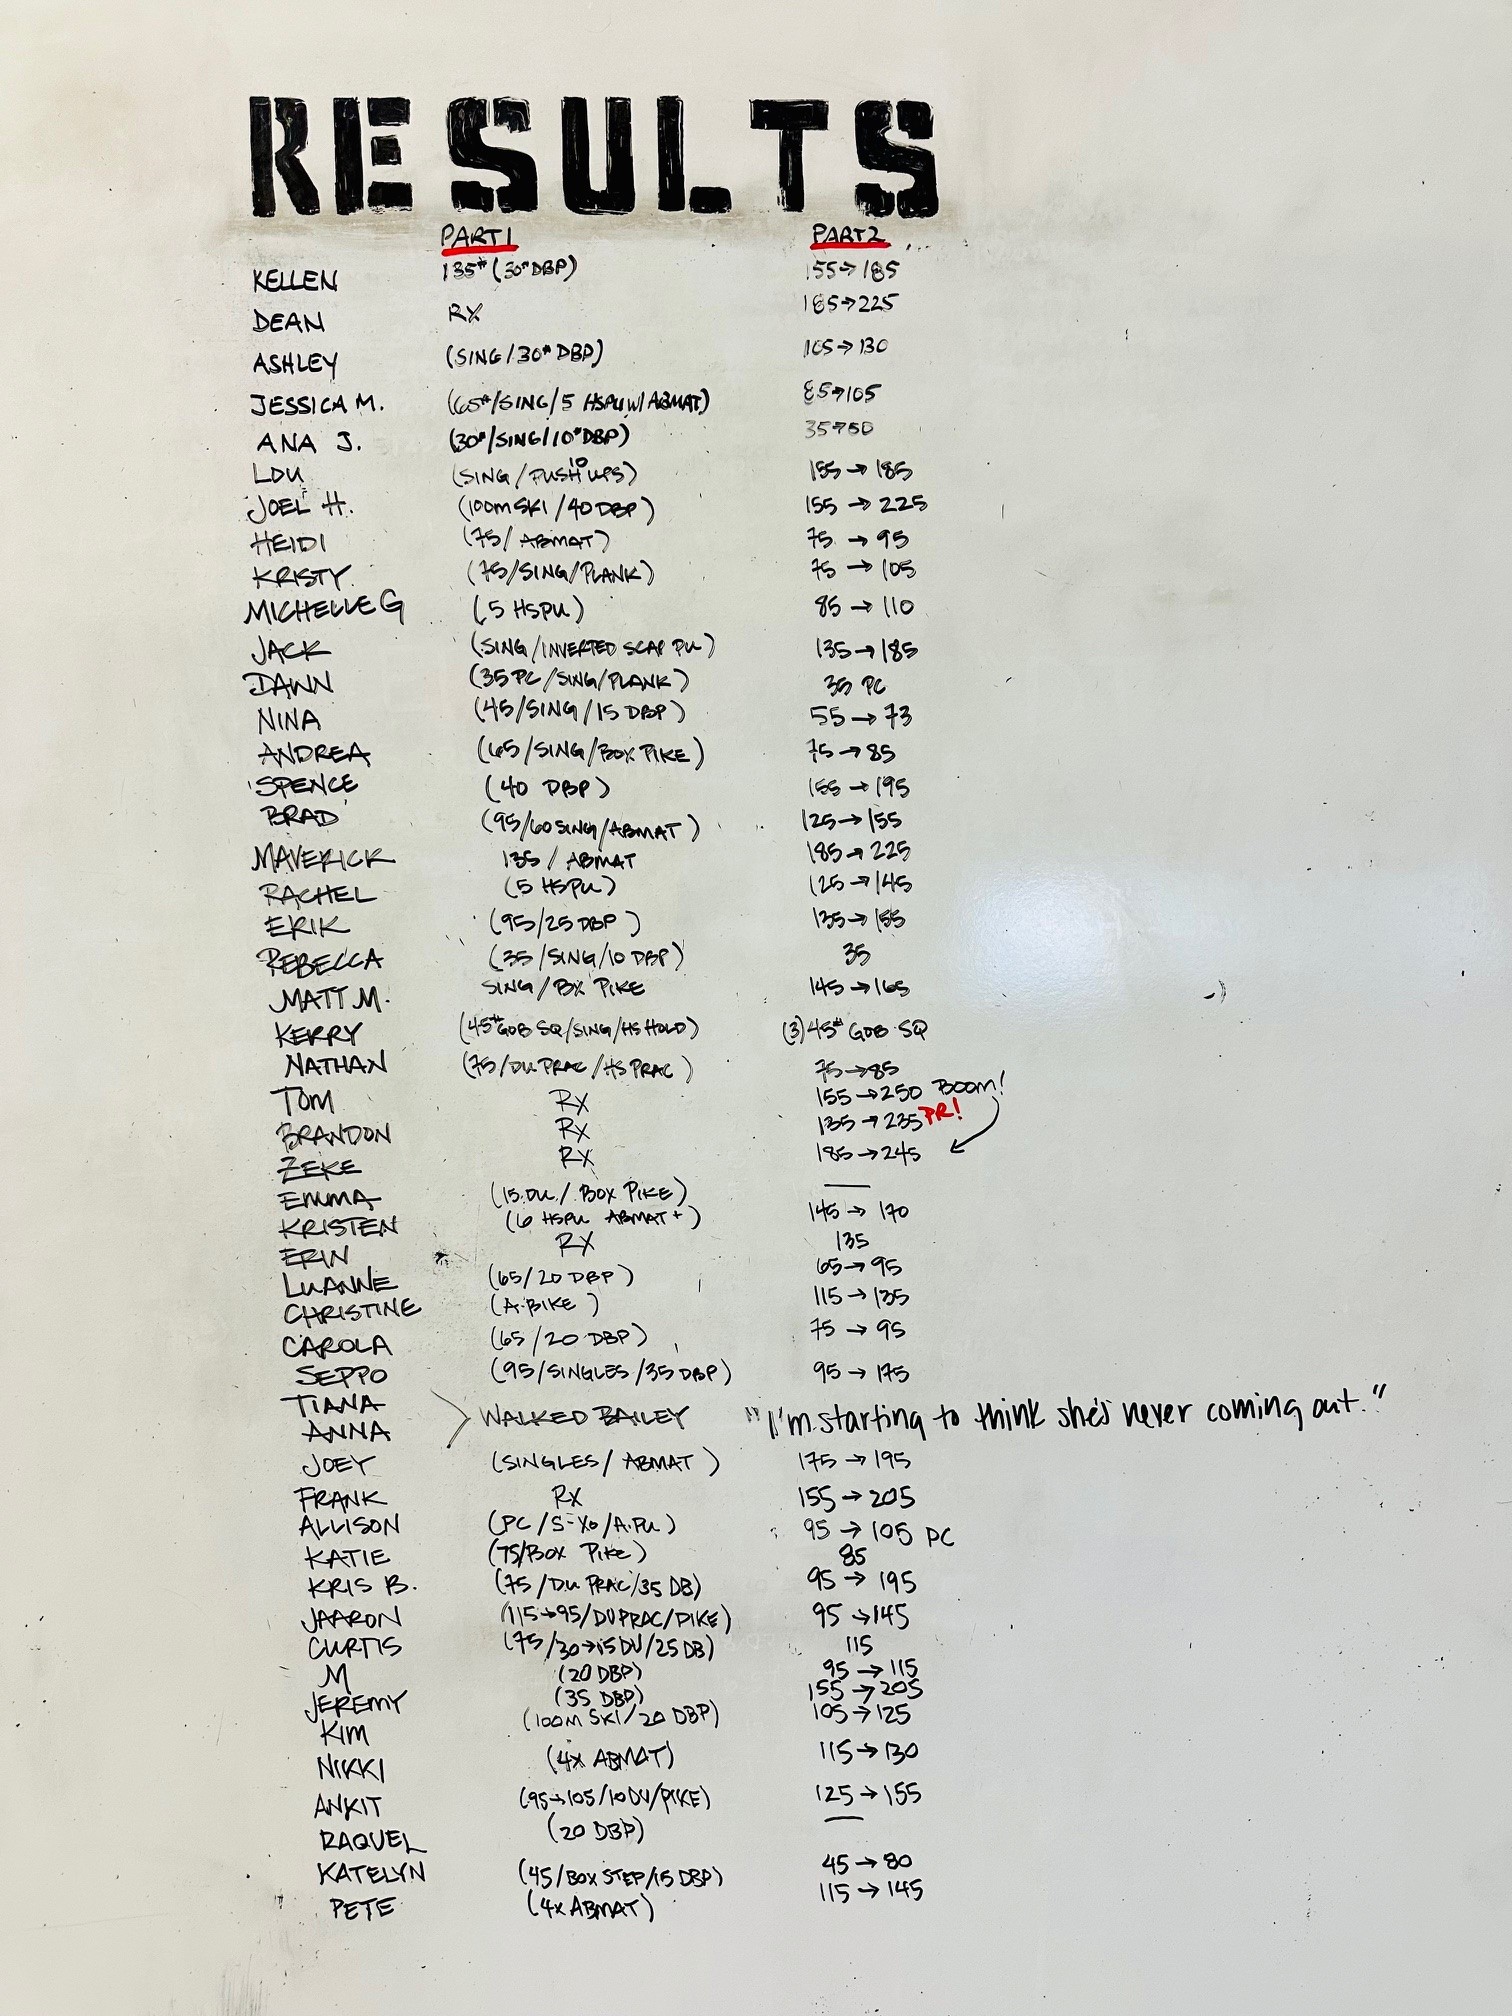 RESULTS
PART 1 PART 2
KELLEN 135# (30# DBP) 155→185
DEAN RX 185→225
ASHLEY (SING/30# DBP) 105→130
JESSICA M. (65#/SING/5 HSPU W/ABMAT) 85→105
ANA J. (30#/SING/10# DBP) 35→50
LOU (SING/PUSH UPS) 10 155→185
JOEL H. (100M SKI/40 DBP) 155→225
HEIDI (75/ABMAT) 75→95
KRISTY (75/SING/PLANK) 75→105
MICHELLE G (5 HSPU) 85→110
JACK (SING/INVERTED SCAP PU) 135→185
DAWN (35 PC/SING/PLANK) 35 PC
NINA (45/SING/15 DBP) 55→73
ANDREA (65/SING/BOX PIKE) 75→85
SPENCE (40 DBP) 155→195
BRAD (95/60 SING/ABMAT) 125→155
MAVERICK 135/ABMAT 185→225
RACHEL (5 HSPU) 125→145
ERIK (95/25 DBP) 135→155
REBECCA (35/SING/10 DBP) 35
MATT M. SING/BX PIKE 145→165
KERRY (45# GOB SQ/SING/HS HOLD) (3) 45# GOB SQ
NATHAN (75/DU PRAC/HS PRAC) 75→85
TOM RX 155→250 BOOM!
BRANDON RX 135→235 PR!
ZEKE RX 185→245
EMMA (15 DU/BOX PIKE) —
KRISTEN (6 HSPU ABMAT+) 145→170
ERIN RX 135
LUANNE (65/20 DBP) 65→95
CHRISTINE (A.BIKE) 115→135
CAROLA (65/20 DBP) 75→95
SEPPO (95/SINGLES/35 DBP) 95→175
TIANA
ANNA > WALKED BAILEY "I'm starting to think she's never coming out."
JOEY (SINGLES/ABMAT) 175→195
FRANK RX 155→205
ALLISON (PC/S-X0/A.PU) 95→105 PC
KATIE (75/BOX PIKE) 85
KRIS B. (75/DU PRAC/35 DB) 95→195
JAARON (115→95/DU PRAC/PIKE) 95→145
CURTIS (75/30→15 DU/25 DB) 115
M (20 DBP) 95→115
JEREMY (35 DBP) 155→205
KIM (100M SKI/20 DBP) 105→125
NIKKI (4X ABMAT) 115→130
ANKIT (95→105/10 DU/PIKE) 125→155
RAQUEL (20 DBP) —
KATELYN (45/BOX STEP/15 DBP) 45→80
PETE (4X ABMAT) 115→145